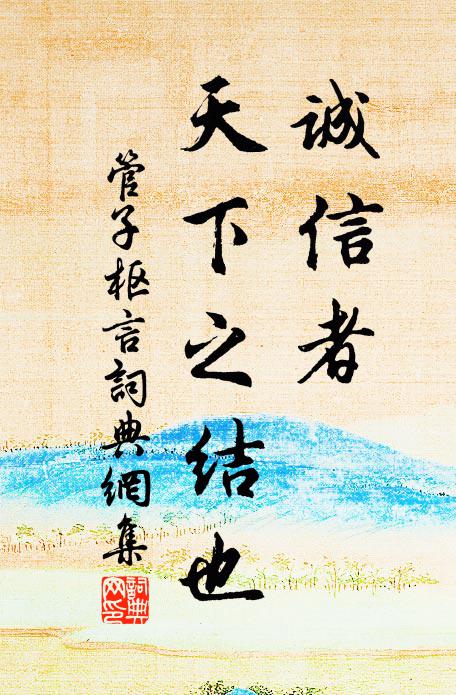 誠信者
天下之結也
管子枢言詞典網集
詞典网印